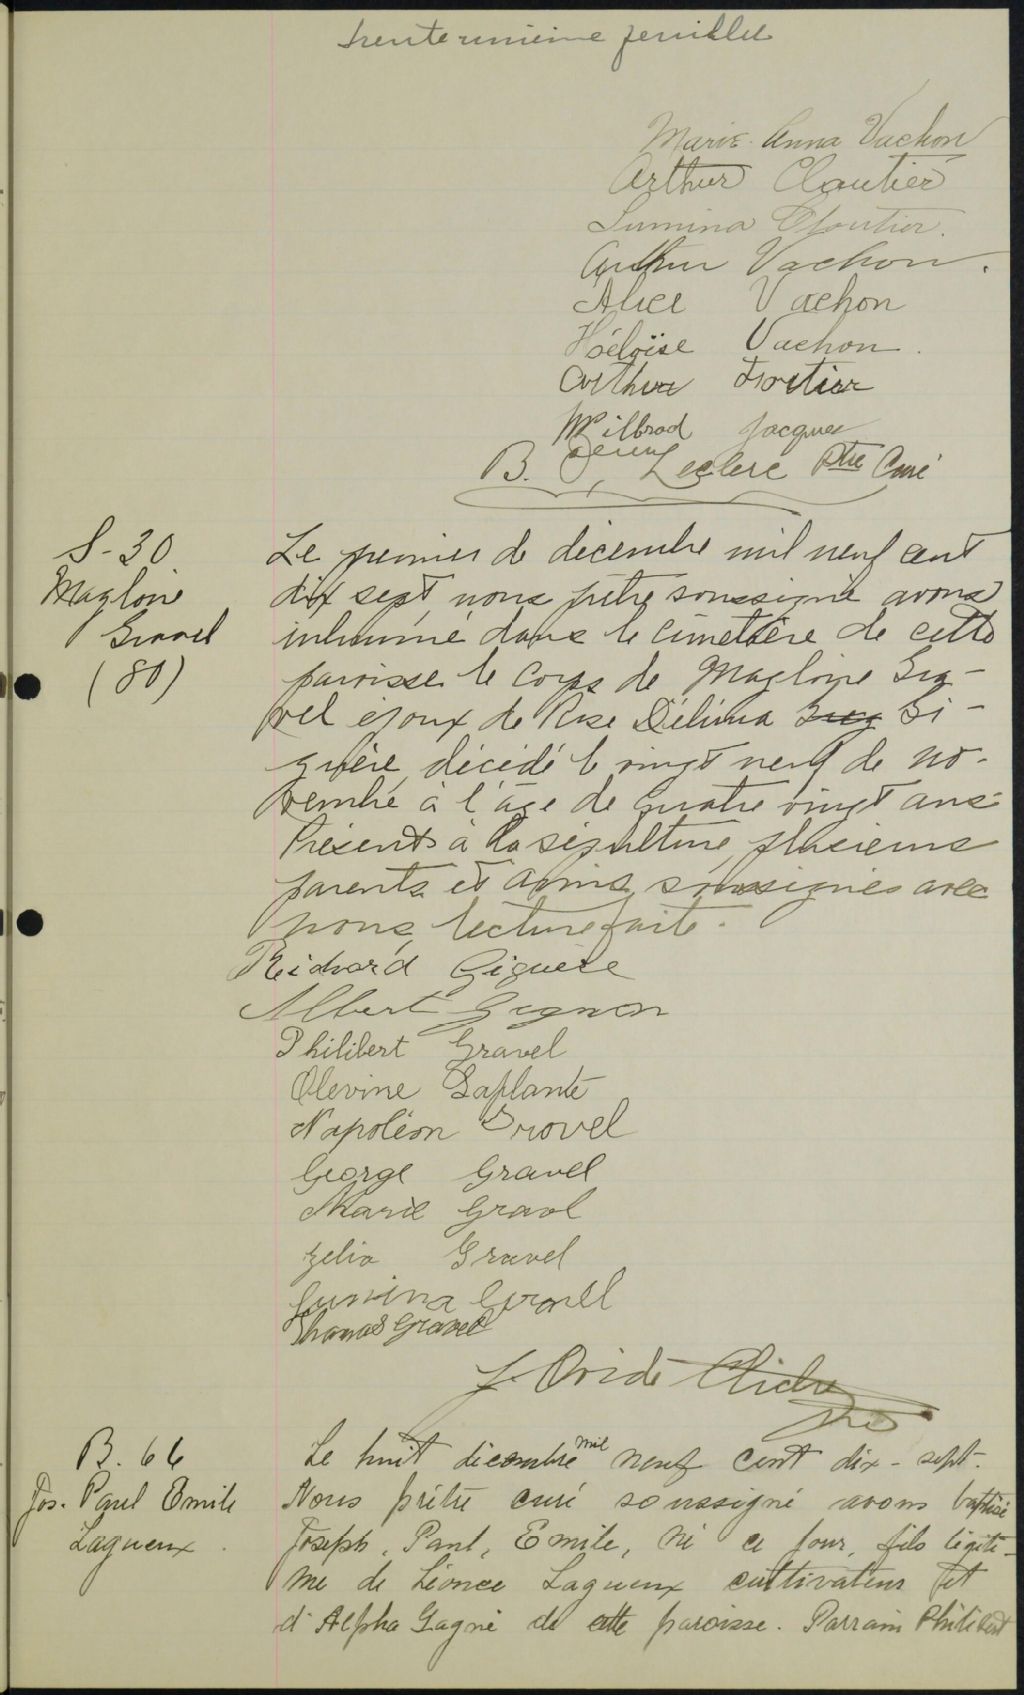 trente unième feuillet
Marie-Anna Vachon
Arthur Cloutier
Lumina Cloutier.
Arthur Vachon.
Alice Vachon
Héloïse Vachon.
Arthur Fortier
Wilbrod Jacques
B. Leclerc Ptre Curé
S-30
Magloire
Gravel
(80)
Le premier de décembre mil neuf cent
dix sept, nous prêtre soussigné avons
inhumé dans le cimetière de cette
paroisse le corps de Magloire Gra-
vel époux de Rose Délima Gi-
guère, décédé le vingt neuf de no-
vembre à l'âge de quatre vingt ans.
Présents à la sépulture plusieurs
parents et amis, soussignés avec
nous, lecture faite.
Richard Giguère
Albert Gagnon
Philibert Gravel
Olevine Laplante
Napoléon Grovel
George Gravel
Marie Gravl
Zelia Gravel
Lumina Gravel
Thomas Gravel
J. Ovide Cliche
Ptre
B. 66
Jos. Paul Emile
Lagueux.
Le huit décembre mil neuf cent dix-sept.
Nous prêtre curé soussigné avons baptisé
Joseph, Paul, Emile, né ce jour, fils légiti-
me de Léonce Lagueux cultivateur et
d'Alpha Gagné de cette paroisse. Parrain Philibert